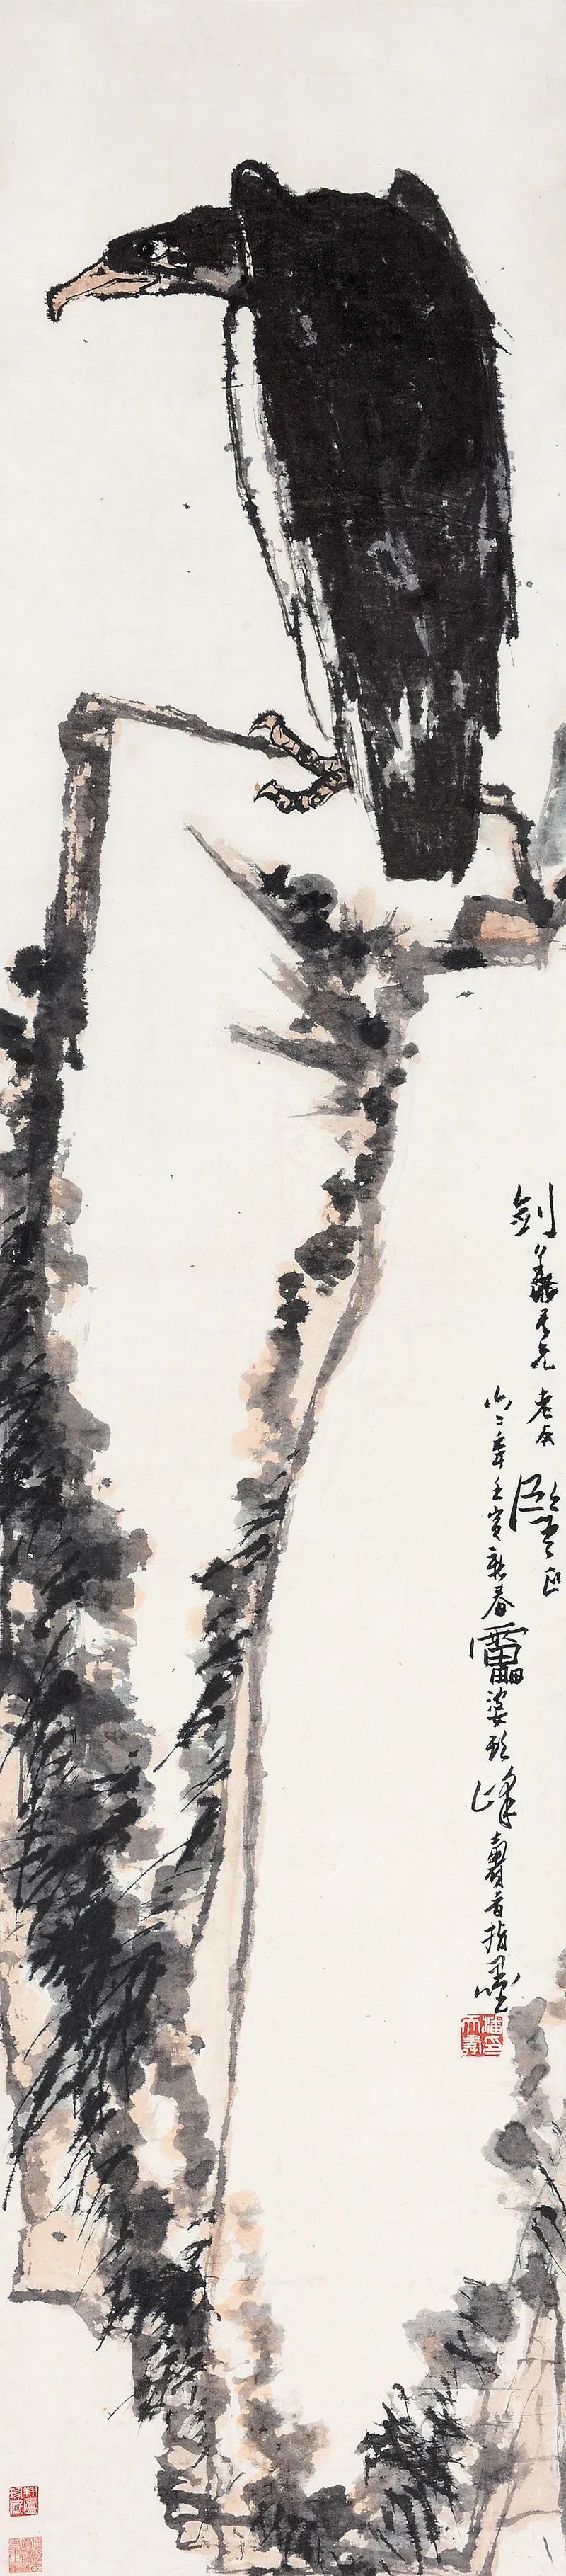 剑兄老友
六二年壬寅新春雷婆头峰寿者指墨
潘印天寿